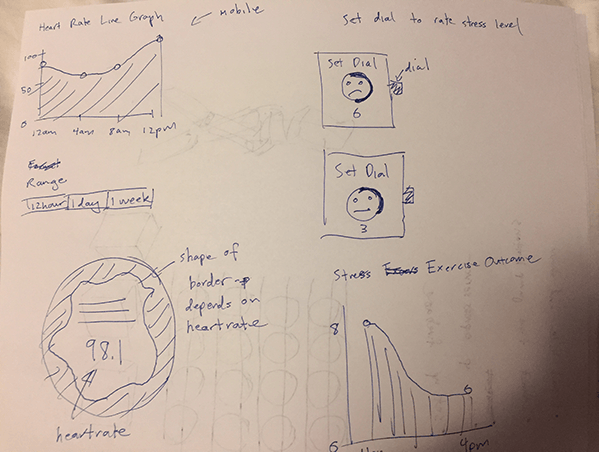 Heart Rate Line Graph
mobile
100
50
0
12am 4am 8am 12pm
Range
12hour 1 day 1 week
shape of
border
depends on
heartrate
98.1
heartrate
Set dial to rate stress level
dial
Set Dial
6
Set Dial
3
Stress Exercise Outcome
8
6
6
4pm